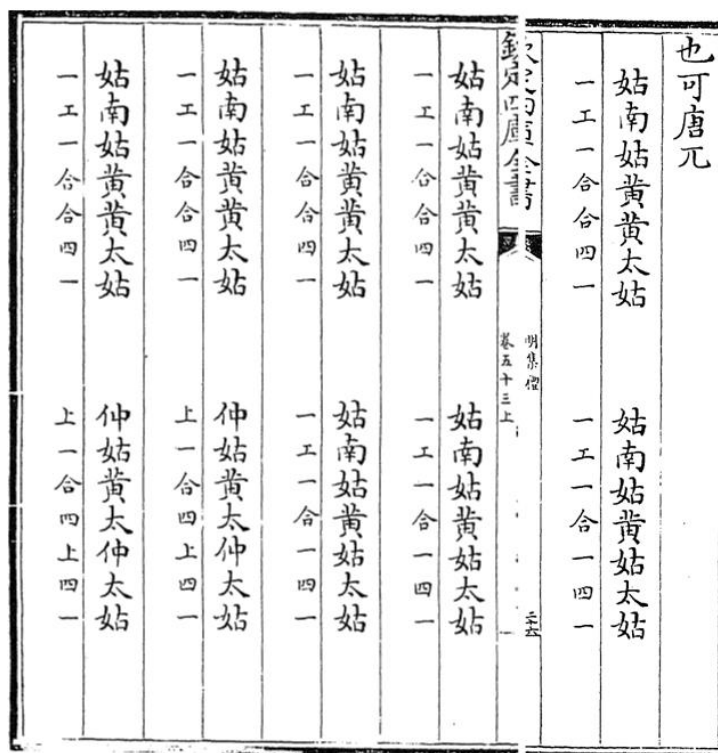 也可唐兀
姑南姑黄黄太姑 姑南姑黄姑太姑
一工一合合四一 一工一合一四一
欽定四庫全書
明集禮
卷五十三上
二十六
姑南姑黄黄太姑 姑南姑黄姑太姑
一工一合合四一 一工一合一四一
姑南姑黄黄太姑 姑南姑黄姑太姑
一工一合合四一 一工一合一四一
姑南姑黄黄太姑 仲姑黄太仲太姑
一工一合合四一 上一合四上四一
姑南姑黄黄太姑 仲姑黄太仲太姑
一工一合合四一 上一合四上四一